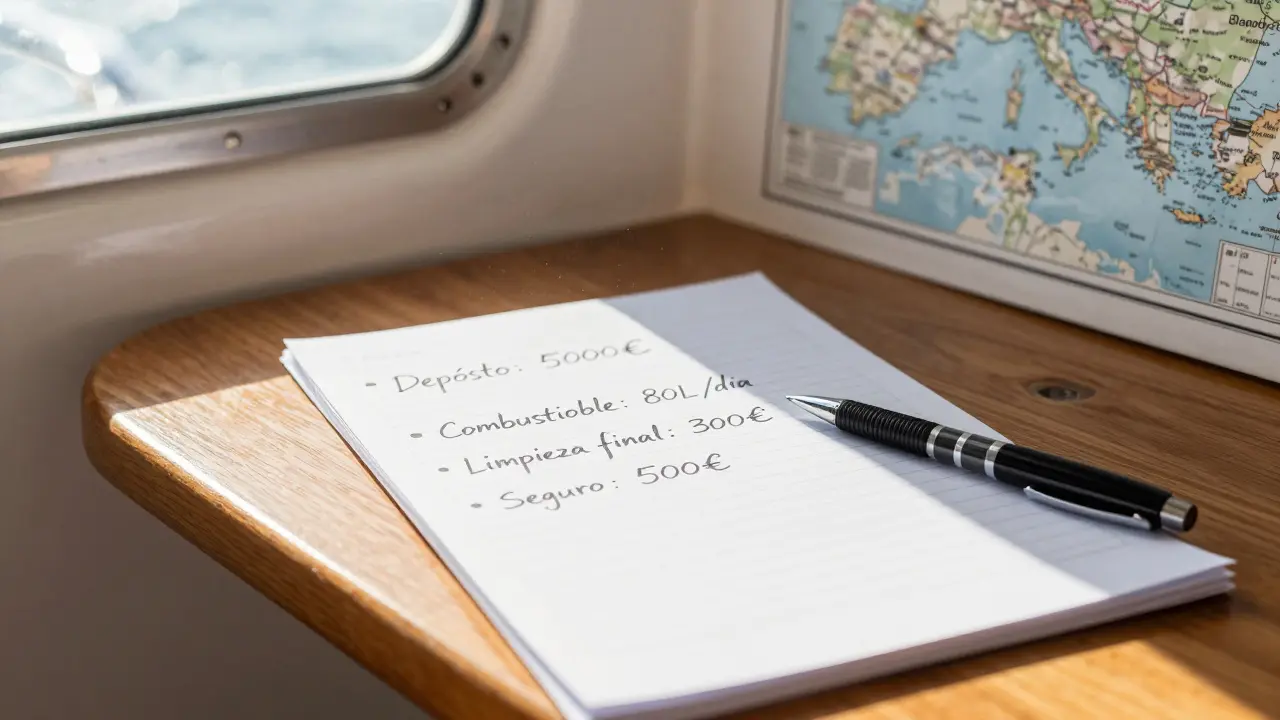 - Depósto: 5000€
• Combustioble: 80L/dia
• Limpieza final: 300€
• Seguro: 500€